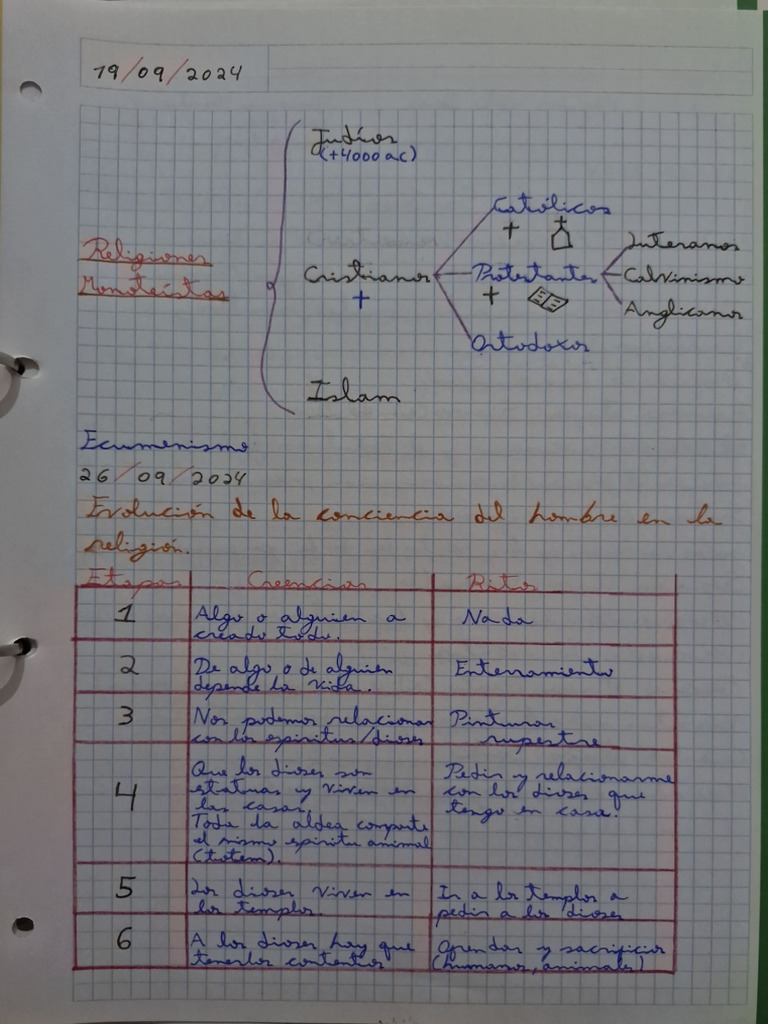 19/09/2024
Judíos
(+4000 ac)
Católicos
Religiones
Monoteístas
Cristianos
Protestantes
Luteranos
Calvinismo
Anglicanos
Ortodoxos
Islam
Ecumenismo
26/09/2024
Evolución de la conciencia del hombre en la
religión.
Etapas Creencias Ritos
1 Algo o alguien a
creado todo.
Nada
2 De algo o de alguien
depende la vida.
Enterramiento
3 Nos podemos relacionar
con los espiritus/dioses
Pinturas
rupestre
4 Que los dioses son
estatuas y viven en
las casas.
Toda la aldea comparte
el mismo espiritu animal
(totem).
Pedir y relacionarme
con los dioses que
tengo en casa.
5 Los dioses viven en
los templos.
Ir a los templos a
pedir a los dioses
6 A los dioses hay que
tenerlos contentos
Ofrendas y sacrificios
(humanos, animales)